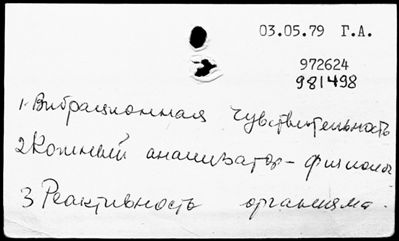 03.05.79 Г.А.
972624
981498
1. Вибрационная чувствительность
2 Кожный анализатор - физиолог
3 Реактивность организма.